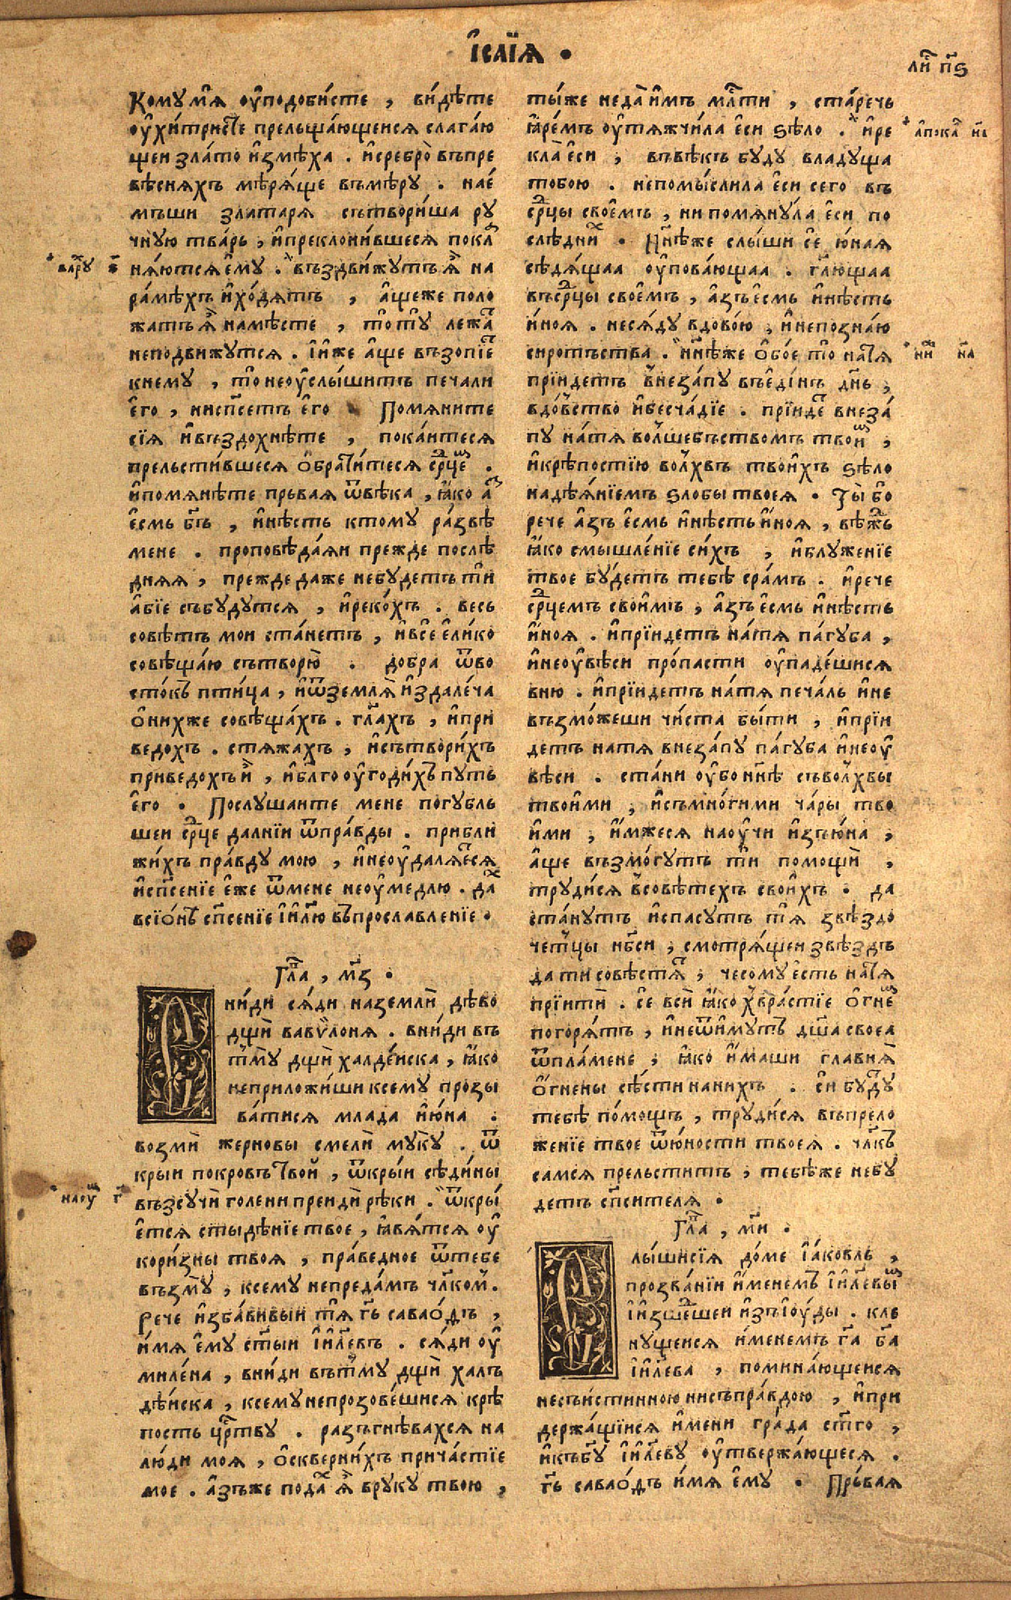 І҆саі́ѧ .
ли҃ п҃ѕ
Комꙋ мѧ̀ ᲂу҆подо́бисте , ви́дѣте
ᲂу҆хитри́сте прельща́ющеисѧ слага́ю
щеи зла́то и҆змѣ́ха . и҆ сребро̀ въпре
вѣ́снѧхъ мѣ́рѧще въмѣ́рꙋ . нае́
мъши златарѧ̀ сътвори́ша рꙋ
чнꙋю тва́рь , и҆ преклони́вшесѧ покла
нѧ́ютсѧ є҆мꙋ . въздви́жꙋтъ ѧ҆̀ на
ра́мѣхъ и҆ хо́дѧтъ , а҆́щеже поло
жатъ ѧ҆̀ на мѣ́сте , то̀ тꙋ̀ лежа
неподви́жꙋтсѧ . і҆ и҆́же а҆́ще възопїе
кнемꙋ , то̀ не ᲂу҆слы́шитъ печали
є҆го̀ , ни сп҃сетъ є҆го̀ . Помѧни́те
сїѧ̀ и҆ въздохнѣ́те , пока́итесѧ
прельсти́вшесѧ ѻ҆брати́тесѧ ср҃цем .
и҆ помѧнѣ́те пръваѧ ѿвѣ́ка , ꙗ҆́ко а҆з
є҆смь бг҃ъ , и҆ нѣ́сть ктомꙋ ра́звѣ
мене . проповѣ́даѧи прежде послѣ
днѧѧ , прежде даже небꙋ́детъ ти
а҆́бїе събꙋ́дꙋтсѧ , и҆ реко́хъ . весь
совѣ́тъ мои ста́нетъ , и҆ всѐ є҆ли́ко
совѣща́ю сътворю̀ . добра ѿво
сто́къ пти́ца , и҆ ѿземлѧ̀ и҆здале́ча
ѻ҆ нихже совѣща́хъ . гл҃ахъ , и҆ при
ведохъ . стѧжахъ , и҆ сътвори́хъ
приведохъ и҆̀ , и҆ бл҃го ᲂу҆годи́хъ пꙋть
є҆го̀ . Послꙋшаите мене погꙋбль
шеи ср҃це далнїи ѿпра́вды . прибли
жи́хъ пра́вдꙋ мою , и҆ не ᲂу҆далѧ́есѧ
и҆ сп҃сенїе є҆́же ѿмене не ᲂу҆медлю . дах
всїо́нъ сп҃сенїе і҆и҃лю въпрославле́нїе .
варꙋ ѕ
Гла , м҃з .
Сни́ди сѧ́ди наземлѝ дѣ́во
дщѝ вавѷло́нѧ . вни́ди въ
тмꙋ̀ дщѝ халде́иска , ꙗ҆́ко
неприложи́ши ксемꙋ прозы
ва́тисѧ млада и҆ ю҆́на .
возмѝ жерновы смелѝ мꙋкꙋ̀ . ѿ
крыи покровъ твой , ѿкры́и сѣди́ны
възсꙋчѝ голени преидѝ рѣ́ки . ѿкры́
е҆тсѧ стыдѣ́нїе твое , ꙗ҆вѧ́тсѧ ᲂу҆
кори́зны твоѧ , пра́ведное ѿтебе
възмꙋ̀ , ксемꙋ непреда́мъ чл҃комъ .
Рече и҆зба́вивыи тѧ̀ гь҃ савао́ѳъ ,
и҆́мѧ є҆мꙋ ст҃ыи і҆и҃левъ . сѧ́ди ᲂу҆
миле́на , вни́ди вътмꙋ дщѝ халъ
дѣ́иска , ксемꙋ непрозове́шисѧ крѣ
пость цр҃твꙋ . разъгнѣ́вахсѧ на
лю́ди моѧ , ѻ҆сквернихъ прича́стїе
мое . а҆зъже подах ѧ҆̀ врꙋкꙋ твою ,
наоу г҃
ты́же неда̀ и҆мъ млⷭти , ста́речь
ꙗ҆ре́мъ ᲂу҆тѧжчи́ла є҆си ѕѣло . и҆ ре
кла̀ є҆си , въвѣкъ бꙋдꙋ владꙋща
тобою . непомы́слила є҆си сего въ
ср҃цы своемъ , ни помѧнꙋла є҆си по
слѣ́дних . Нн҃ѣже слы́ши сѐ ю҆́наѧ
сѣдѧ́щаа ᲂу҆пова́ющаа . гл҃ющаа
въср҃цы своемъ , а҆́зъ є҆смь и҆ нѣ́сть
и҆́ноѧ . несѧ́дꙋ вдово́ю , и҆ непозна́ю
сиротъства . нн҃ѣже ѻ҆бо́е то̀ натѧ
прїи́детъ внеза́пꙋ въ є҆ди́нъ дн҃ь ,
вдо́вство и҆ бесча́дїе . прїи́де внеза́
пꙋ на́тѧ волшебъствомъ твоим ,
и҆ крѣ́постїю волхвъ твои́хъ ѕѣло
надѣ́ѧнїемъ ѕлобы твоеѧ . Ты̀ бо
рече а҆́зъ є҆смь и҆ нѣ́сть и҆́ноѧ , вѣ́жъ
ꙗ҆́ко смышле́нїе си́хъ , и҆ блꙋже́нїе
твое бꙋ́детъ тебѣ сра́мъ . и҆ рече
ср҃цемъ свои́мъ , а҆зъ є҆смь и҆ нѣ́сть
и҆́ноѧ . и҆ прїи́детъ на́тѧ па́гꙋба ,
и҆ не ᲂу҆вѣ́си про́пасти ᲂу҆паде́шисѧ
вню . и҆ прїи́детъ на́тѧ печа́ль и҆ не
възмо́жеши чи́ста быти , и҆ прїи
детъ натѧ внеза́пꙋ па́гꙋба и҆ не ᲂу҆
вѣси . ста́ни ᲂу҆бо нн҃ѣ съволхвы
твои́ми , и҆ съмно́гими ча́ры тво
и҆́ми , и҆́мжесѧ наᲂу҆чи и҆зъю҆́на ,
а҆́ще възмо́гꙋтъ ти помощѝ ,
трꙋди́сѧ всовѣ́техъ свои́хъ . да
ста́нꙋтъ и҆спасꙋтъ тѧ̀ звѣздо
че́тцы нб҃си , смотрѧ́щеи звѣздъ
да ти совѣстѧ , чесомꙋ є҆́сть натѧ
прїитѝ . сѐ всѝ ꙗ҆ко хвра́стїе ѻ҆гнем
погорѧ́тъ , и҆ неѿи́мꙋтъ дш҃а своеа
ѿпла́мене , ꙗ҆́ко и҆́маши главнѧ̀
ѻ҆́гнены сѣ́сти нанихъ . си бꙋдꙋ
тебѣ по́мощъ , трꙋди́сѧ въпрело
же́нїе твое ѿю҆́ности твоеѧ . чл҃къ
самсѧ прельститъ , тебѣ́же небꙋ
детъ сп҃сителѧ .
а҆покал и҃ъ
н҃и н҃а
Гла , м҃и .
Слы́шисїѧ до́ме і҆а́ковль ,
прозва́нїи и҆́менемъ і҆и҃левым
і҆ и҆зше́дшеи и҆зъ і҆ꙋ́ды . кле
нꙋ́щеисѧ и҆́менемъ г҃а б҃а
і҆и҃лева , помина́ющеисѧ
несъи́стинною нисъпра́вдою , и҆ при
держа́щїисѧ и҆́мени гра́да ст҃го ,
и҆ къбꙋ҃ і҆и҃левꙋ ᲂу҆твержа́ющесѧ .
гь҃ савао́ѳъ и҆́мѧ є҆мꙋ . Пръваѧ